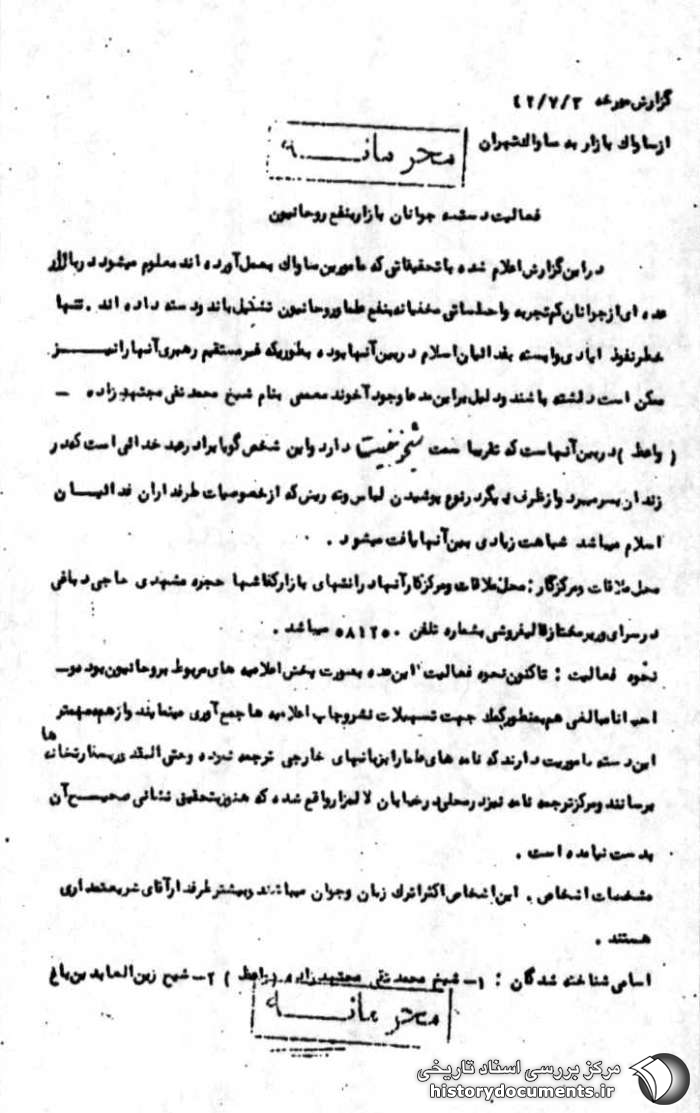 گزارش مورخه ۴۲/۷/۲
از ساواک بازار به ساواک تهران
محرمانه
فعالیت دسته جوانان بازار بنفع روحانیون
در این گزارش اعلام شده با تحقیقاتی که مامورین ساواک بعمل آورده اند معلوم میشود در بازار
عده ای از جوانان کم تجربه و احساساتی مخفیانه بنفع علما و روحانیون تشکیل باند و دسته داده اند . تنها
خطر نفوذ ایادی وابسته بفدائیان اسلام در بین آنها بوده بطوریکه غیر مستقیم رهبری آنها را نیز
ممکن است داشته باشند و دلیل بر این مدعا وجود آخوند معممی بنام شیخ محمد تقی مجتهدزاده –
( واعظ ) در بین آنهاست که تقریبا سمت دارد و این شخص گویا برادر عبد خدائی است که در
زندان بسر میبرد و از طرف دیگر در نوع پوشیدن لباس و ته ریش که از خصوصیات طرفداران فدائیان
اسلام میباشد شباهت زیادی بین آنها یافت میشود .
محل ملاقات و مرکز کار : محل ملاقات و مرکز کار آنها در انتهای بازار کفاشها حجره مشهدی حاجی دباغی
در سرای وزیر ممتاز قالیفروشی بشماره تلفن ۵۸۱۲۵۰ میباشد .
نحوه فعالیت : تاکنون نحوه فعالیت این عده بصورت پخش اعلامیه های مربوط بروحانیون بوده و
احیانا مبالغی هم بمنظور کمک جهت تسهیلات نشر و چاپ اعلامیه ها جمع آوری مینمایند و از همه مهمتر
این دسته ماموریت دارند که نامه های علما را بزبانهای خارجی ترجمه نموده و حتی المقدور بسفارتخانه ها
برسانند و مرکز ترجمه نامه نیز در محلی در خیابان لاله زار واقع شده که هنوز بتحقیق نشانی صحیح آن
بدست نیامده است .
مشخصات اشخاص . این اشخاص اکثرا ترک زبان و جوان میباشند و بیشتر طرفدار آقای شریعتمداری
هستند .
اسامی شناخته شدگان : ۱- شیخ محمد تقی مجتهدزاده ( واعظ ) ۲- شیخ زین العابدین
محرمانه
مرکز بررسی اسناد تاریخی
historydocuments.ir